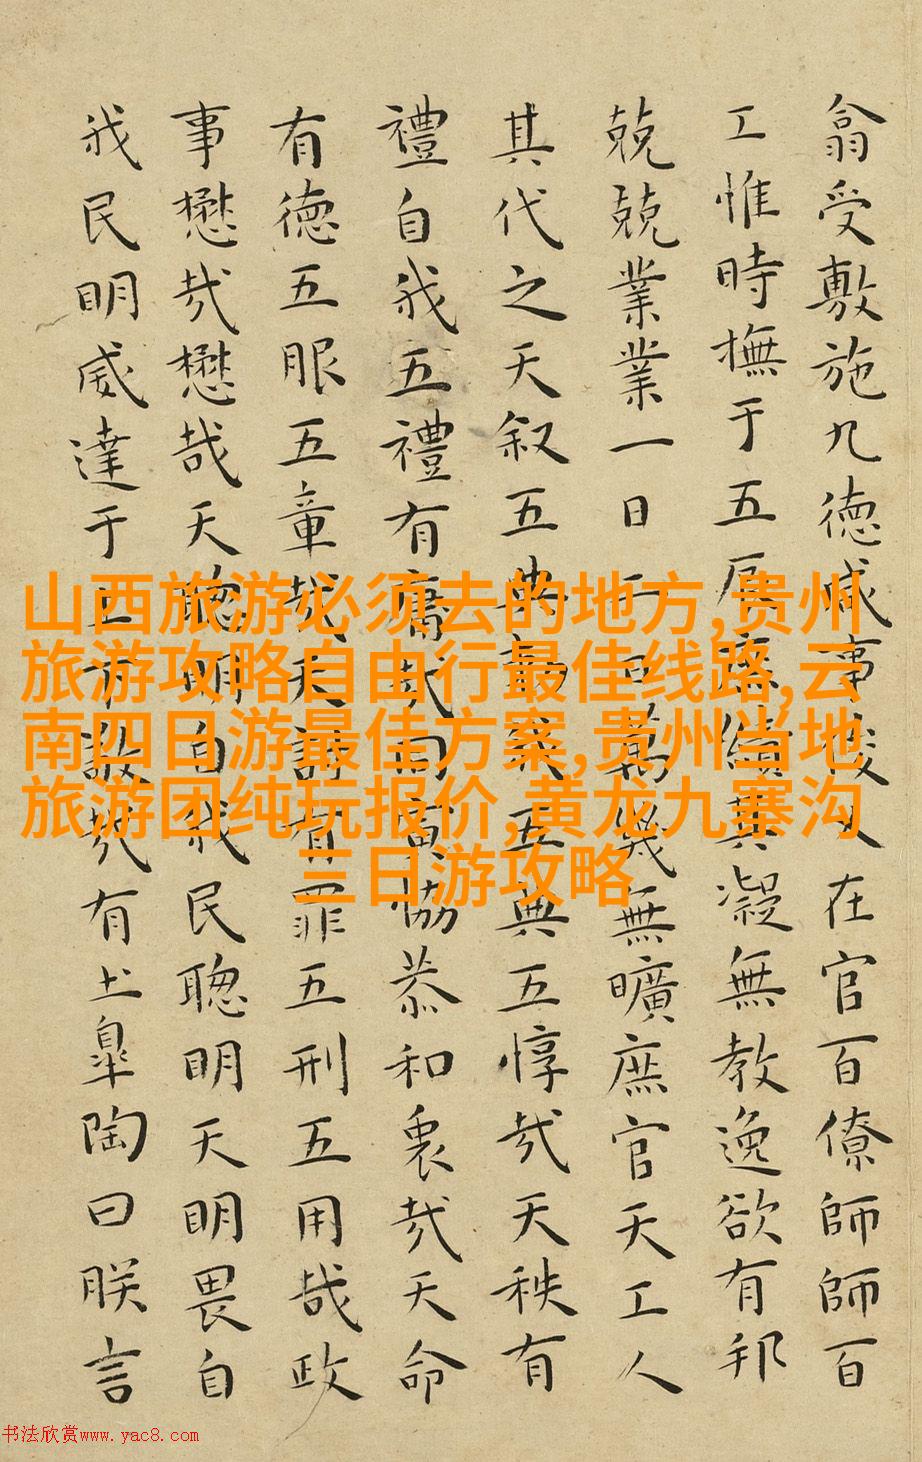 翕受敷施九德咸事俊乂在官百僚師師百
工惟時撫于五辰庶績其凝無教逸欲有邦
兢兢業業一日二日萬幾無曠庶官天工人
其代之天叙五典勑我五典五惇哉天秩有
禮自我五禮有庸哉同寅協恭和衷哉天命
有德五服五章哉天討有罪五刑五用哉政
事懋哉懋哉天聰明自我民聰明天明畏自
我民明威達于上下敬哉有土皋陶曰朕言
山西旅游必须去的地方,贵州
旅游攻略自由行最佳线路,云
南四日游最佳方案,贵州当地
旅游团纯玩报价,黄龙九寨沟
三日游攻略
书法欣赏www.yac8.com